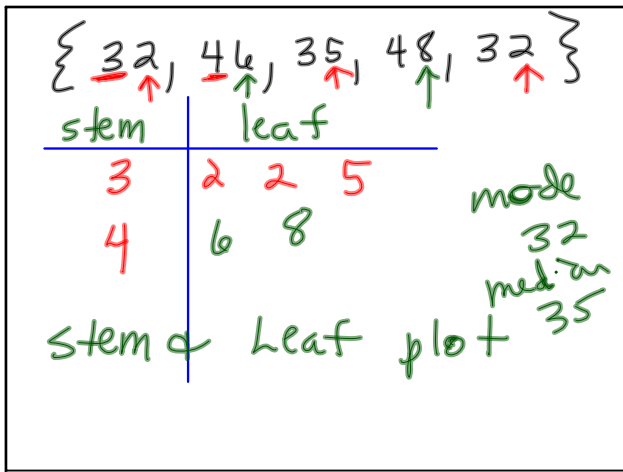 { 32, 46, 35, 48, 32 }
stem leaf
3 2 2 5
4 6 8
mode
32
median
35
stem & Leaf plot